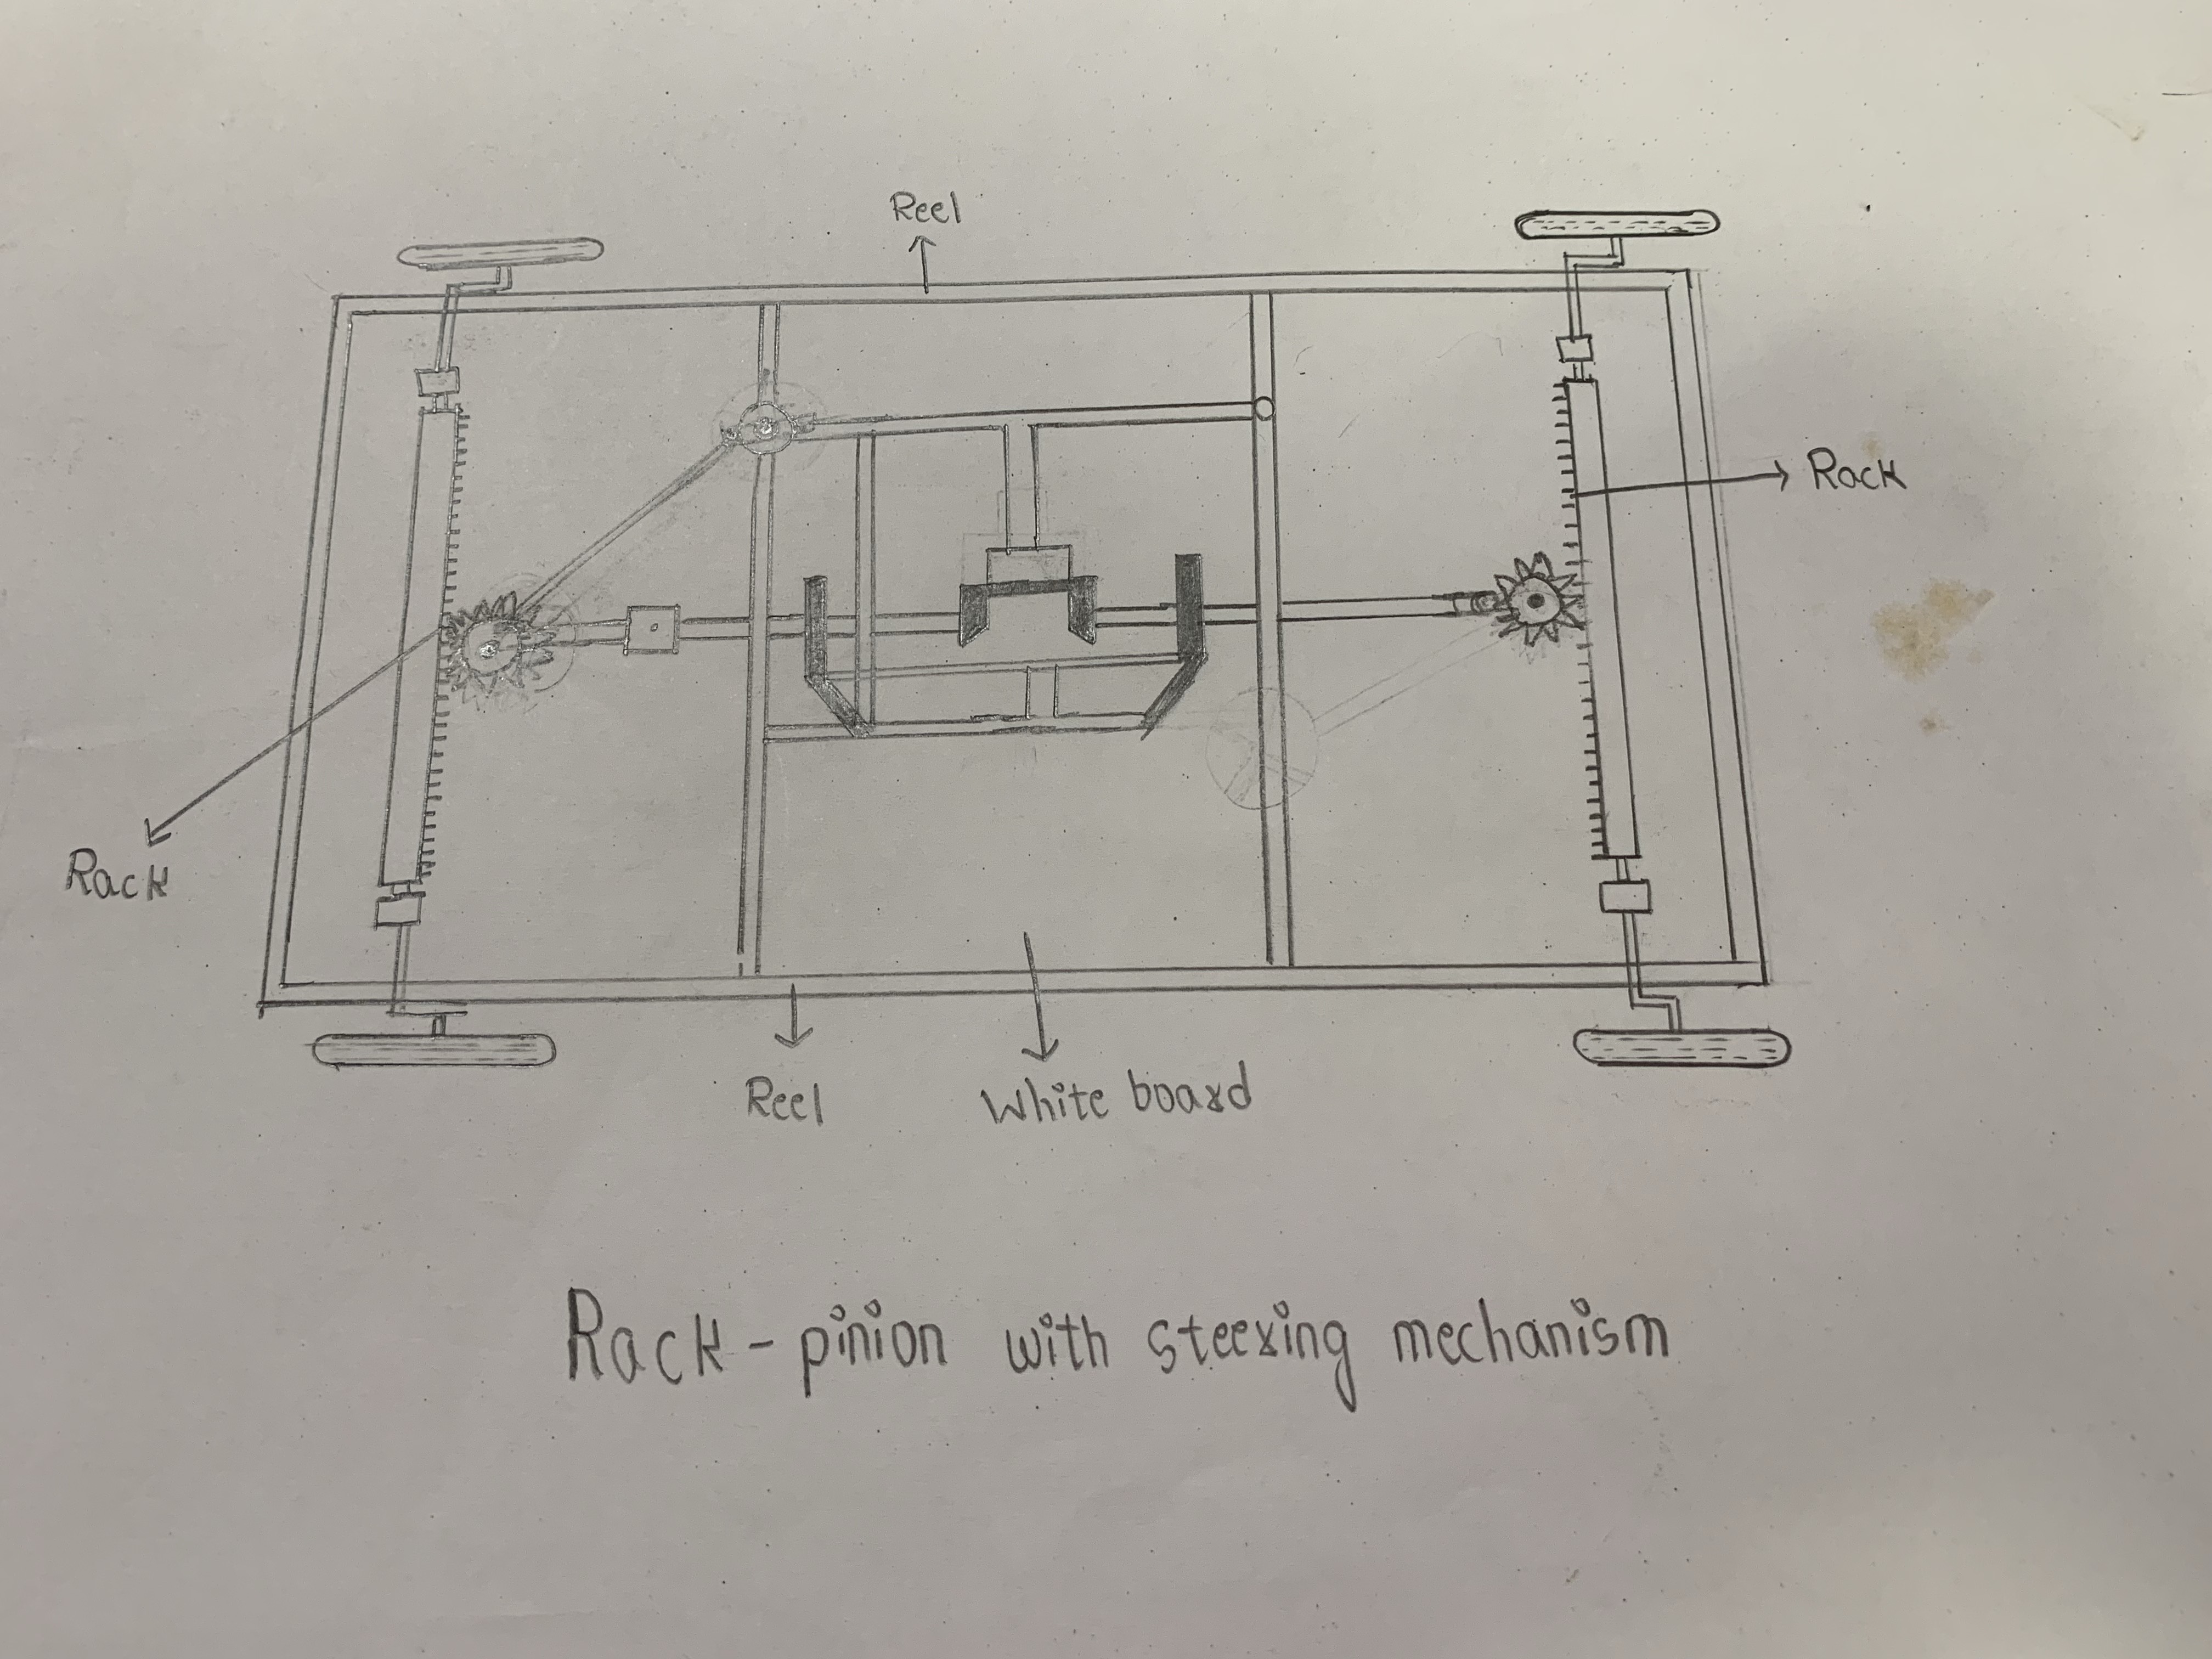 Reel
Rack
Rack
Reel
White board
Rack - pinion with steering mechanism